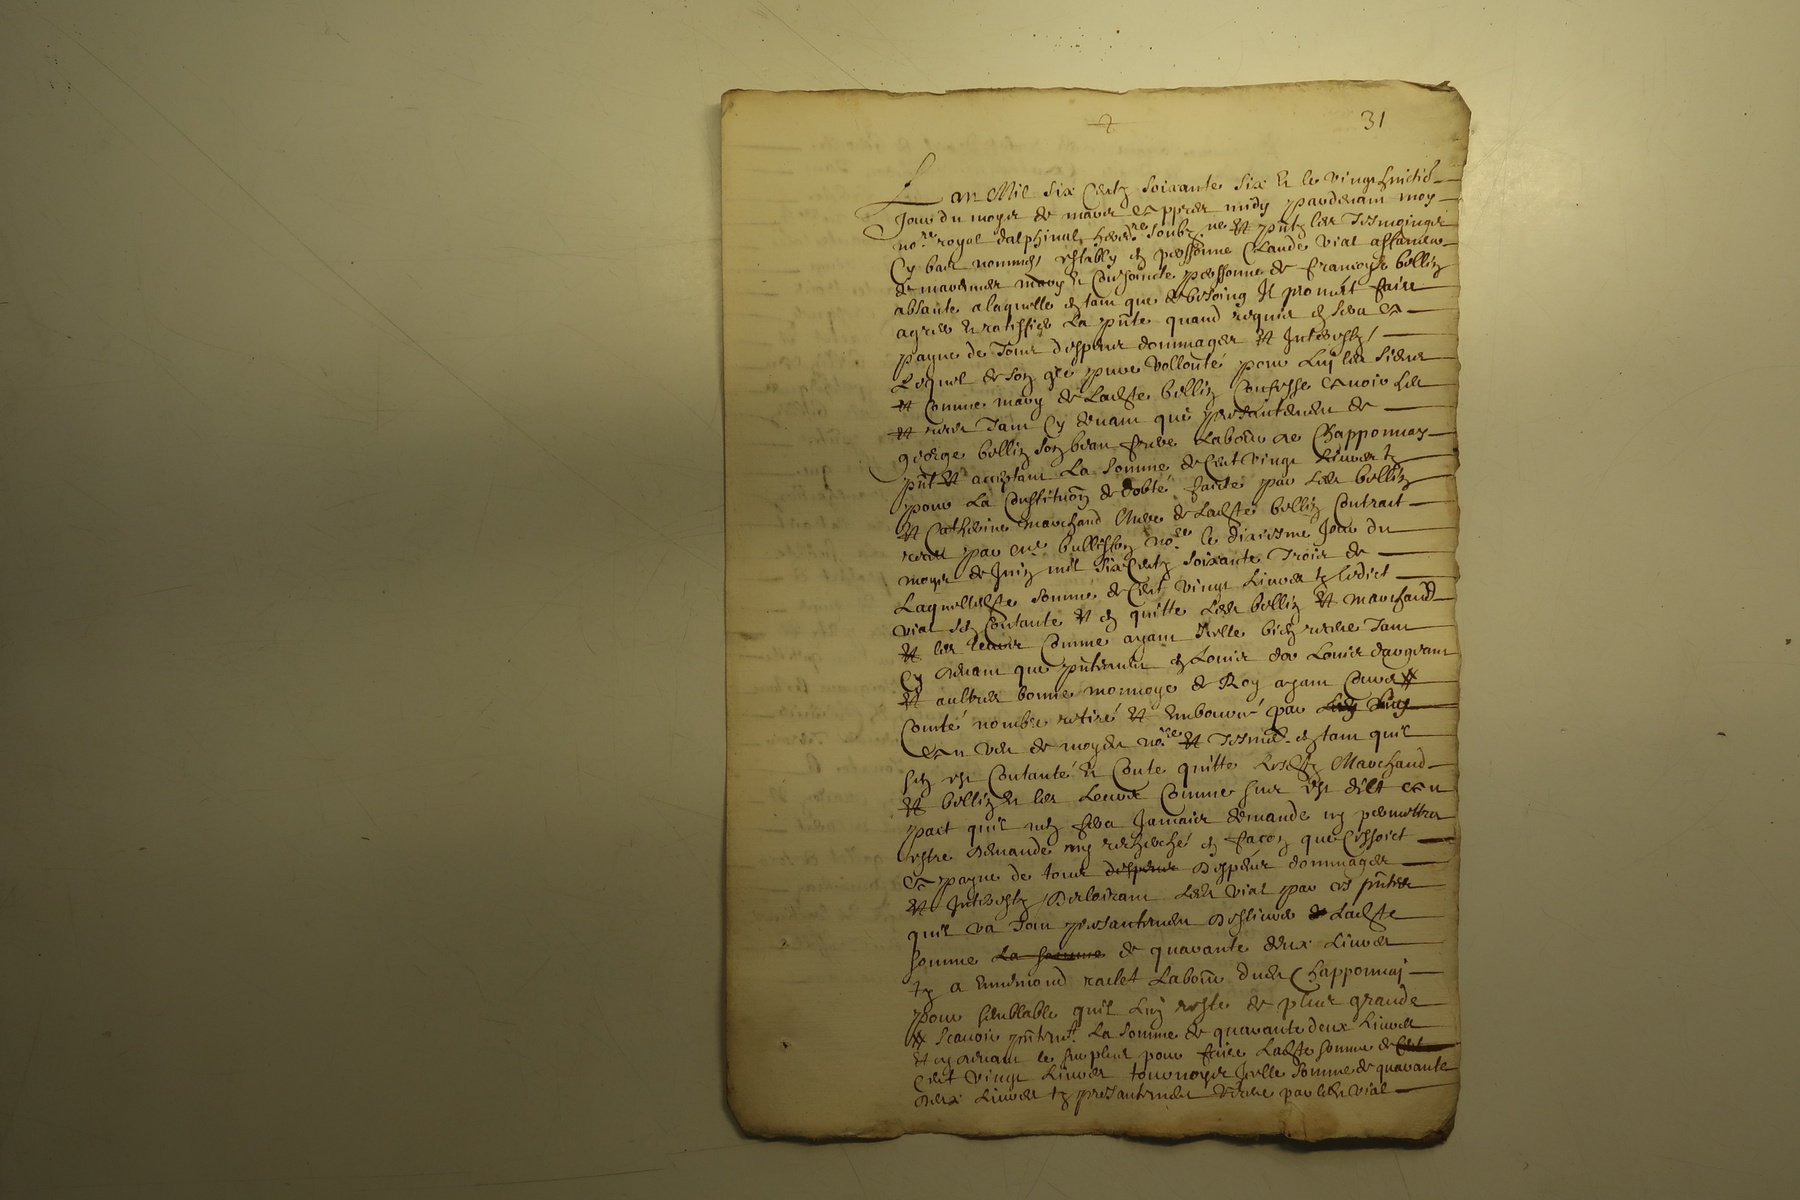 31
Lan Mil six Centz soixante six & le vingt huictie
Jour du moys de mars appres midy pardevant moy
no.re royal dalphinal hered.re soubz.ne et pntz les Tesmoingz
Cy bas nommes estably en personne Claude vial affaneur
de mary & Conjoincte personne de francoyse bellin
absante a laquelle en tant que de besoing Il promet faire
agreer & ratiffier La pnte quand requis en sera a
payne de Tous despens dommages et Interestz /
Lequel de son gre pure vollonte pour Luy les siens
et Comme mary de Ladte bellin Confesse avoir heu
et receu Tant Cy devant que presantement de
george bellin son beau frere Labour de Chapponnay
pnt et acceptant La somme de Cent vingt Livres tz
pour La Constitution de dobte faicte par Led bellin
et Catherine marchand Mere de Ladte bellin Contract
receu par me bullisson no.re le dixiesme Jour du
moys de Juin mil six Centz soixante Trois de
Laquelle dte somme de Cent vingt Livres tz ledict
vial sen Contante et en quitte Led bellin et marchand
et les leurs Comme ayant Icelle bien receue Tant
Cy devant que pntement en Louis dor Louis dargeant
et aultres bonne monnoye de Roy ayant Cours
Compte nombre retire et Embource par
en veu de moyd no.re et Tesmoz en tant quil
sen est Contante & Conte quitte Lesdtz Marchand
et bellin & les Leurs Comme sus est dict en
pact quil nen fera Jamais demande ny permettra
estre demande ny recherche en facon que Cessoict
a payne de tous despens despens dommages
et Interestz / Declairant Led vial par ces pntes
quil va Tout presantement deslivrer Ladte
somme La somme de quarante deux Livres
tz a Enemond raclet Labour dud Chapponnay
pour semblable quil Luy reste de plus grande
scavoir pntemt La somme de quarante deux Livres
et cy devant le surplus pour faire Ladte somme de Cent
Cent vingt Livres tournoyses Icelle somme de quarante
deux Livres tz presantement receue par led vial